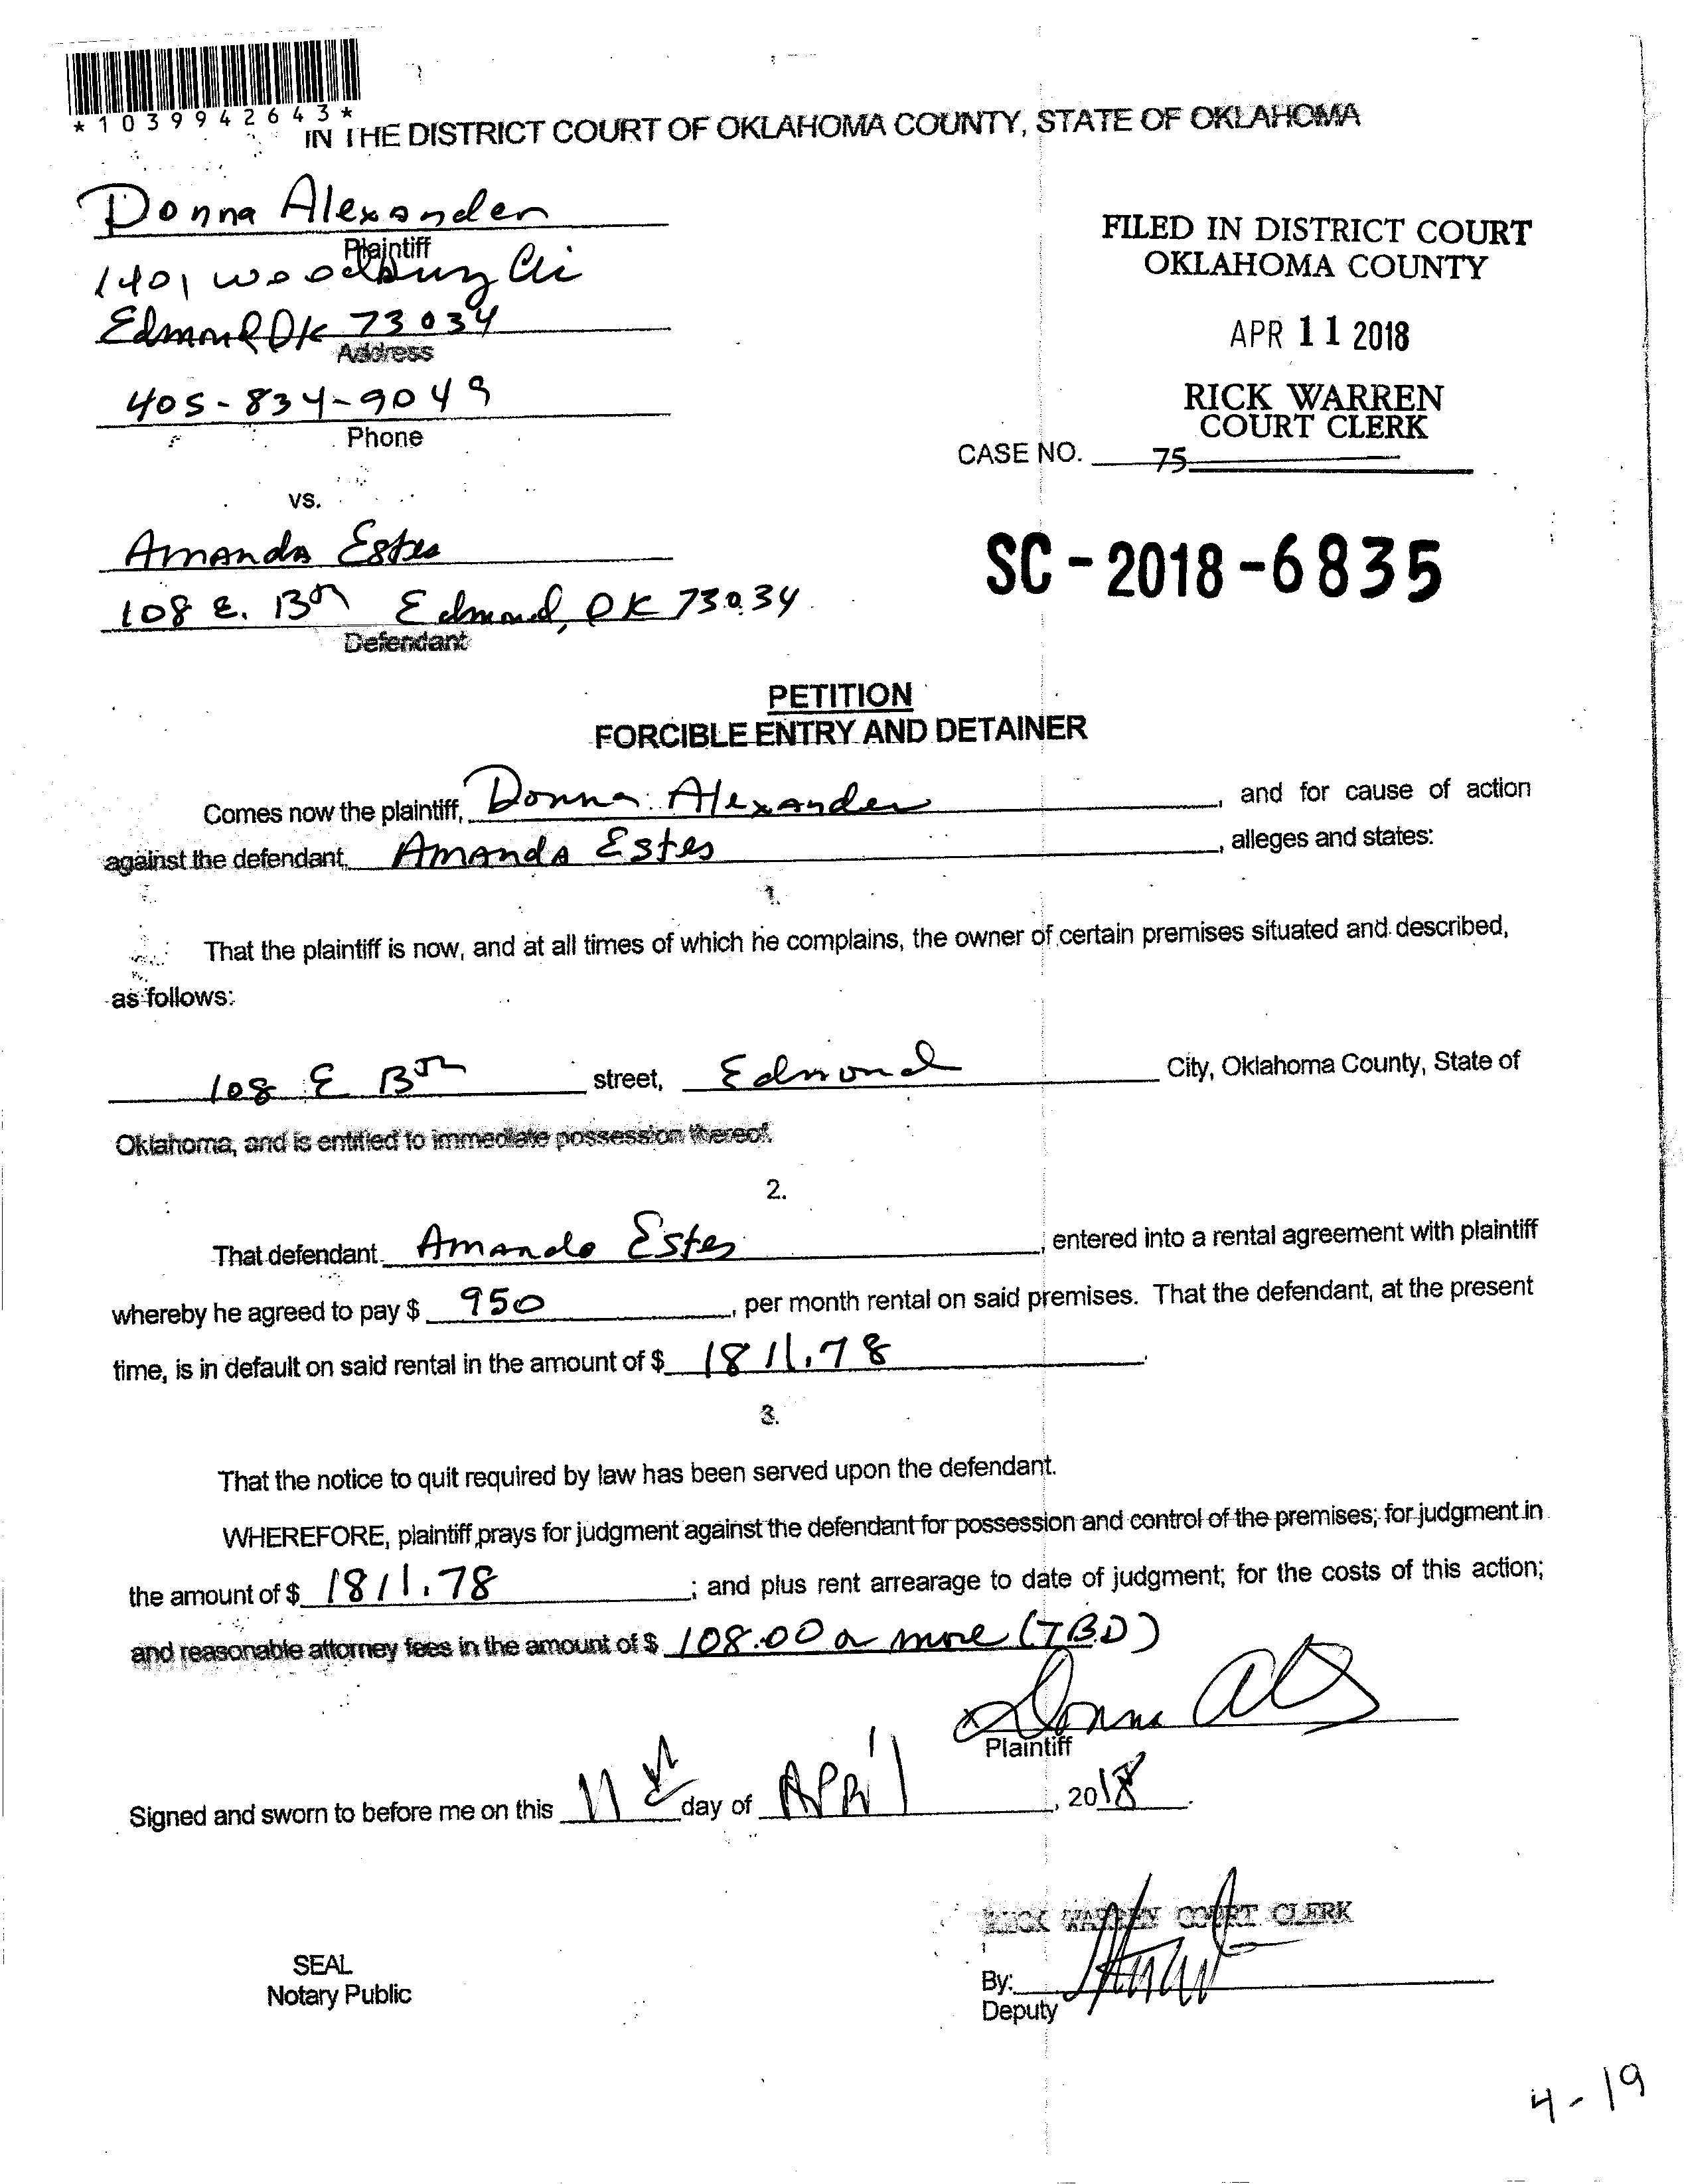 *1039942643*
IN THE DISTRICT COURT OF OKLAHOMA COUNTY, STATE OF OKLAHOMA
Donna Alexander
Plaintiff
1401 Woodbury Cir
Edmond OK 73034
Address
405-834-9049
Phone
FILED IN DISTRICT COURT
OKLAHOMA COUNTY
APR 11 2018
RICK WARREN
COURT CLERK
CASE NO. 75
vs.
Amanda Estes
108 E. 13th Edmond, OK 73034
Defendant
SC-2018-6835
PETITION
FORCIBLE ENTRY AND DETAINER
Comes now the plaintiff, Donna Alexander, and for cause of action
against the defendant, Amanda Estes, alleges and states:
1.
That the plaintiff is now, and at all times of which he complains, the owner of certain premises situated and described,
as follows:
108 E 13th street, Edmond City, Oklahoma County, State of
Oklahoma, and is entitled to immediate possession thereof.
2.
That defendant Amanda Estes, entered into a rental agreement with plaintiff
whereby he agreed to pay $ 950, per month rental on said premises. That the defendant, at the present
time, is in default on said rental in the amount of $ 1811.78.
3.
That the notice to quit required by law has been served upon the defendant.
WHEREFORE, plaintiff prays for judgment against the defendant for possession and control of the premises; for judgment in
the amount of $ 1811.78; and plus rent arrearage to date of judgment; for the costs of this action;
and reasonable attorney fees in the amount of $ 108.00 or more (TBD)
Donna
Plaintiff
Signed and sworn to before me on this 11th day of April, 2018.
RICK WARREN COURT CLERK
SEAL
Notary Public
By:
Deputy
4-19